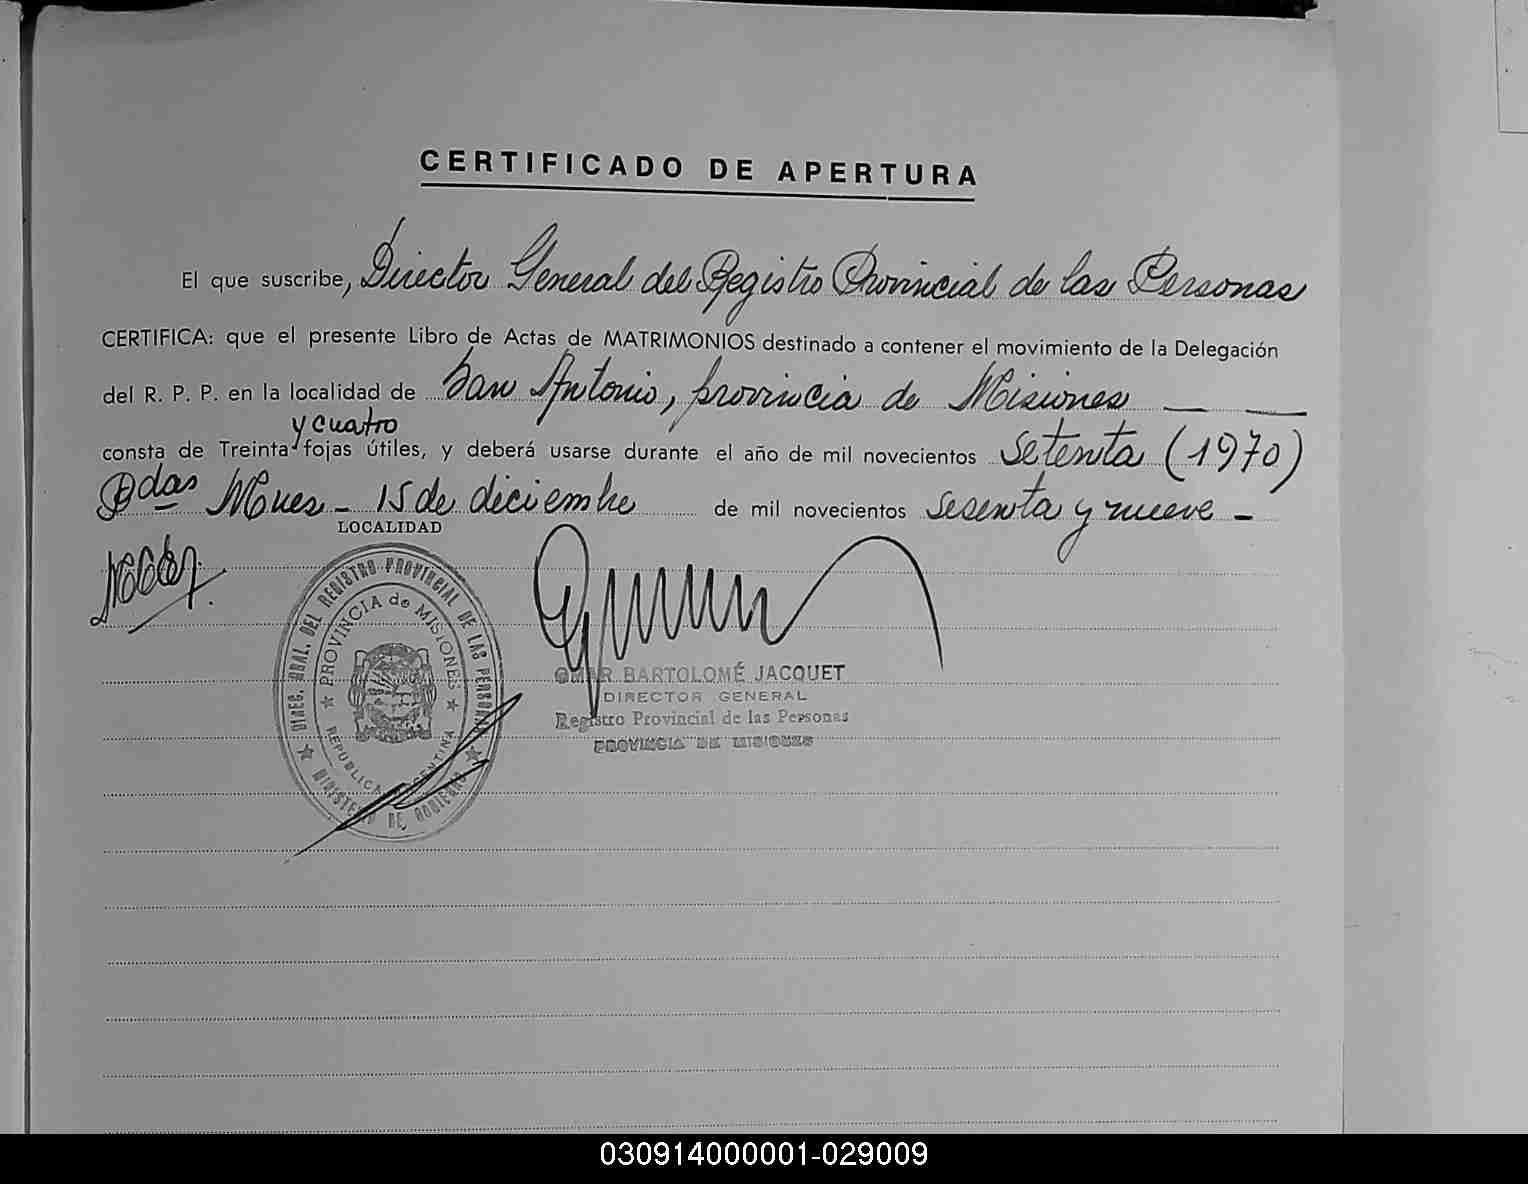 CERTIFICADO DE APERTURA
El que suscribe, Director General del Registro Provincial de las Personas
CERTIFICA: que el presente Libro de Actas de MATRIMONIOS destinado a contener el movimiento de la Delegación
del R. P. P. en la localidad de San Antonio, provincia de Misiones — —
y cuatro
consta de Treinta fojas útiles, y deberá usarse durante el año de mil novecientos setenta (1970)
Pdas Mnes - 15 de diciembre de mil novecientos sesenta y nueve -
LOCALIDAD
DIREC. GRAL. DEL REGISTRO PROVINCIAL DE LAS PERSONAS
PROVINCIA de MISIONES
REPUBLICA ARGENTINA
MINISTERIO DE GOBIERNO
OMAR BARTOLOMÉ JACQUET
DIRECTOR GENERAL
Registro Provincial de las Personas
PROVINCIA DE MISIONES
030914000001-029009